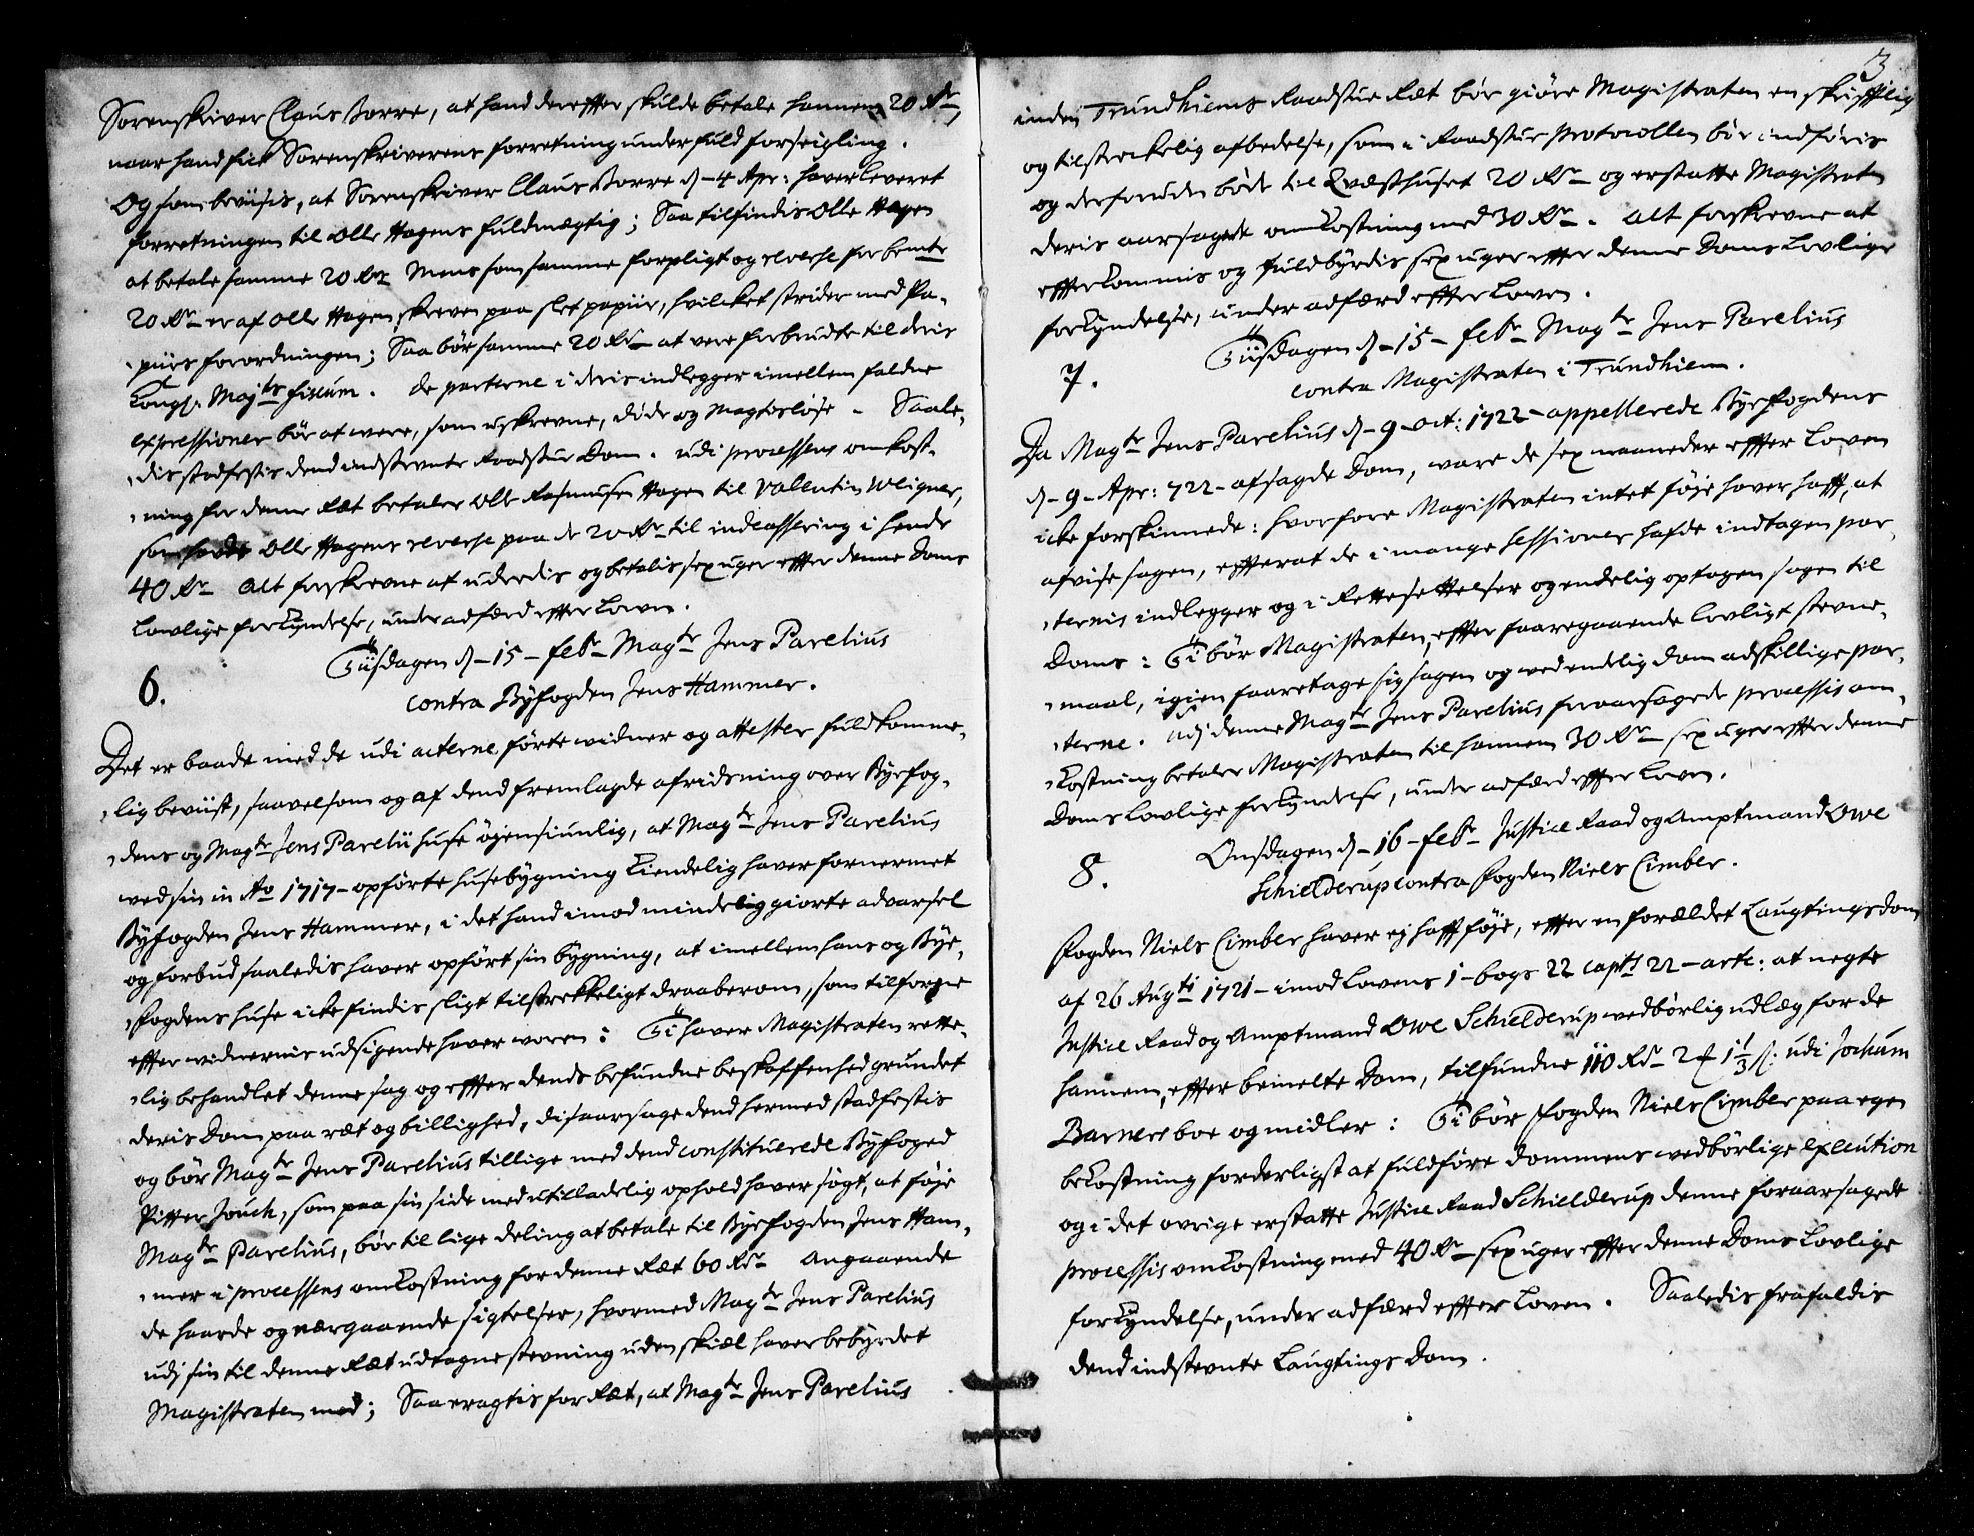 Sorenskriver Claus Borre, at hand dereffter skulde betale hannem 20 Rdr
naar hand fick Sorenskriverens forretning under fuld forseigling.
Og som beviisis, at Sorenskriver Claus Borre d- 4 Apr: haver leveret
forretningen til Olle Hagens fuldmægtig; Saa tilfindis Olle Hagen
at betale samme 20 Rdr Mens som samme forpligt og reverse for bemte
20 Rdr er af Olle Hagen skreven paa slet papiir, hvilcket strider med Pa-
-piirs forordningen; Saa bør samme 20 Rdr at vere forbrudte til deris
Kongl. Majts fiscum. De parterne i deris indlegger imellem faldne
expressioner bør at were, som uskrevne, døde og magtesløse - Saale-
-dis stadfestis dend indstevnte Raadstue Dom. udi processens omkost-
-ning for denne Ræt betaler Olle Rasmusen Hagen til Vallentin Weigner,
som hafde Olle Hagens reverse paa de 20 Rdr til indcassering i hende
40 Rdr Alt forskrevne at uderedis og betalis sex uger effter denne Doms
Lowlige forkyndelse, under adfærd effter Loven.
6.
Tiisdagen d- 15- febr Magtr Jens Parelius
contra Byfogden Jens Hammer.
Det er baade med de udi acterne førte widner og attester fuldkomme-
-lig beviist, saavelsom og af dend fremlagde afridsning over Byefog-
-dens og Magtr Jens Parelii huse øjensiunlig, at Magtr Jens Parelius
ved sin in Ao 1717- opførte husebygning kiendelig haver fornermet
Byfogden Jens Hammer, i det hand imod mindelig giorte advarsel
og forbud saaledis haver opført sin bygning, at imellem hans og Bye-
-fogdens huse icke findis sligt tilstrekkeligt draaberom, som tilforne
effter widnernis udsigende haver waren: Ti haver Magistraten rette-
-lig behandlet denne sag og effter dends befundne beskaffenhed grundet
deris Dom paa ræt og billighed, dis aarsage dend hermed stadfestis
og bør Magtr Jens Parelius tillige med dend constituerede Byfoged
Pitter Jouch, som paa sin side med utilladelig ophold haver søgt, at føje
Magtr Parelius, bør til lige deling at betale til Byefogden Jens Ham-
-mer i processens omkostning for denne Ræt 60 Rdr Angaaende
de haarde og nærgaaende sigtelser, hvormed Magtr Jens Parelius
udj sin til denne Ræt udtagne stevning uden skiæl haver bebyrdet
Magistraten med; Saa eragtis for Ræt, at Magtr Jens Parelius
3
inden Trundhiems Raadstue Ræt bør giøre Magistraten en skrifftlig
og tilstreckelig afbedelse, som i Raadstue Protocollen bør indføris
og desforuden bøde til Qvæsthuset 20 Rdr og erstatte Magistraten
deris aarsagede omkostning med 30 Rdr. Alt forskrevne at
effterkommis og fuldbyrdis sex uger effter denne Doms Lovlige
forkyndelse, under adfærd effter Loven.
7.
Tiisdagen d- 15- febr Magtr Jens Parelius
contra Magistraten i Trundhiem.
Da Magtr Jens Parelius d- 9- oct: 1722- appellerede Byefogdens
d- 9- Apr: 722- afsagde Dom, ware de sex maaneder effter Loven
icke forskinnede: hvorfore Magistraten intet føje haver hafft, at
afvise sagen, effterat de i mange Sessioner hafde indtagen par-
-ternis indlegger og i Rettesettelser og endelig optagen sagen til
Doms: Ti bør Magistraten, effter faaregaaende lovligt stevne-
-maal, igien faaretage sig sagen og wed endelig dom adskillige par-
-terne. Udj denne Magtr Jens Parelius foraarsagede processis om-
-kostning betaler Magistraten til hannem 30 Rdr sex uger effter denne
Doms Lovlige forkyndelse, under adfærd effter Loven.
8.
Onsdagen d- 16- febr Justice Raad og Amptmand Owe
Schielderup contra fogden Niels Cimber.
Fogden Niels Cimber haver ej hafft føje, effter en forældet Laugtingsdom
af 26 Augti 1721- imod Lovens 1- bogs 22 capts 22- artc: at negte
Justice Raad og Amptmand Owe Schielderup wedbørlig udlæg for de
hannem, effter bemelte Dom, tilfundne 110 Rdr 2 1 1/3 s. udi Jochum
Barners boe og midler: Ti bør Fogden Niels Cimber paa egen
bekostning forderligst at fuldføre dommens wedbørlige execution
og i det øvrige erstatte Justice Raad Schielderup denne foraarsagede
processis omkostning med 40 Rdr sex uger effter denne Doms Lovlige
forkyndelse, under adfærd effter Loven. Saaledis frafaldis
dend indstevnte Laugtings Dom.